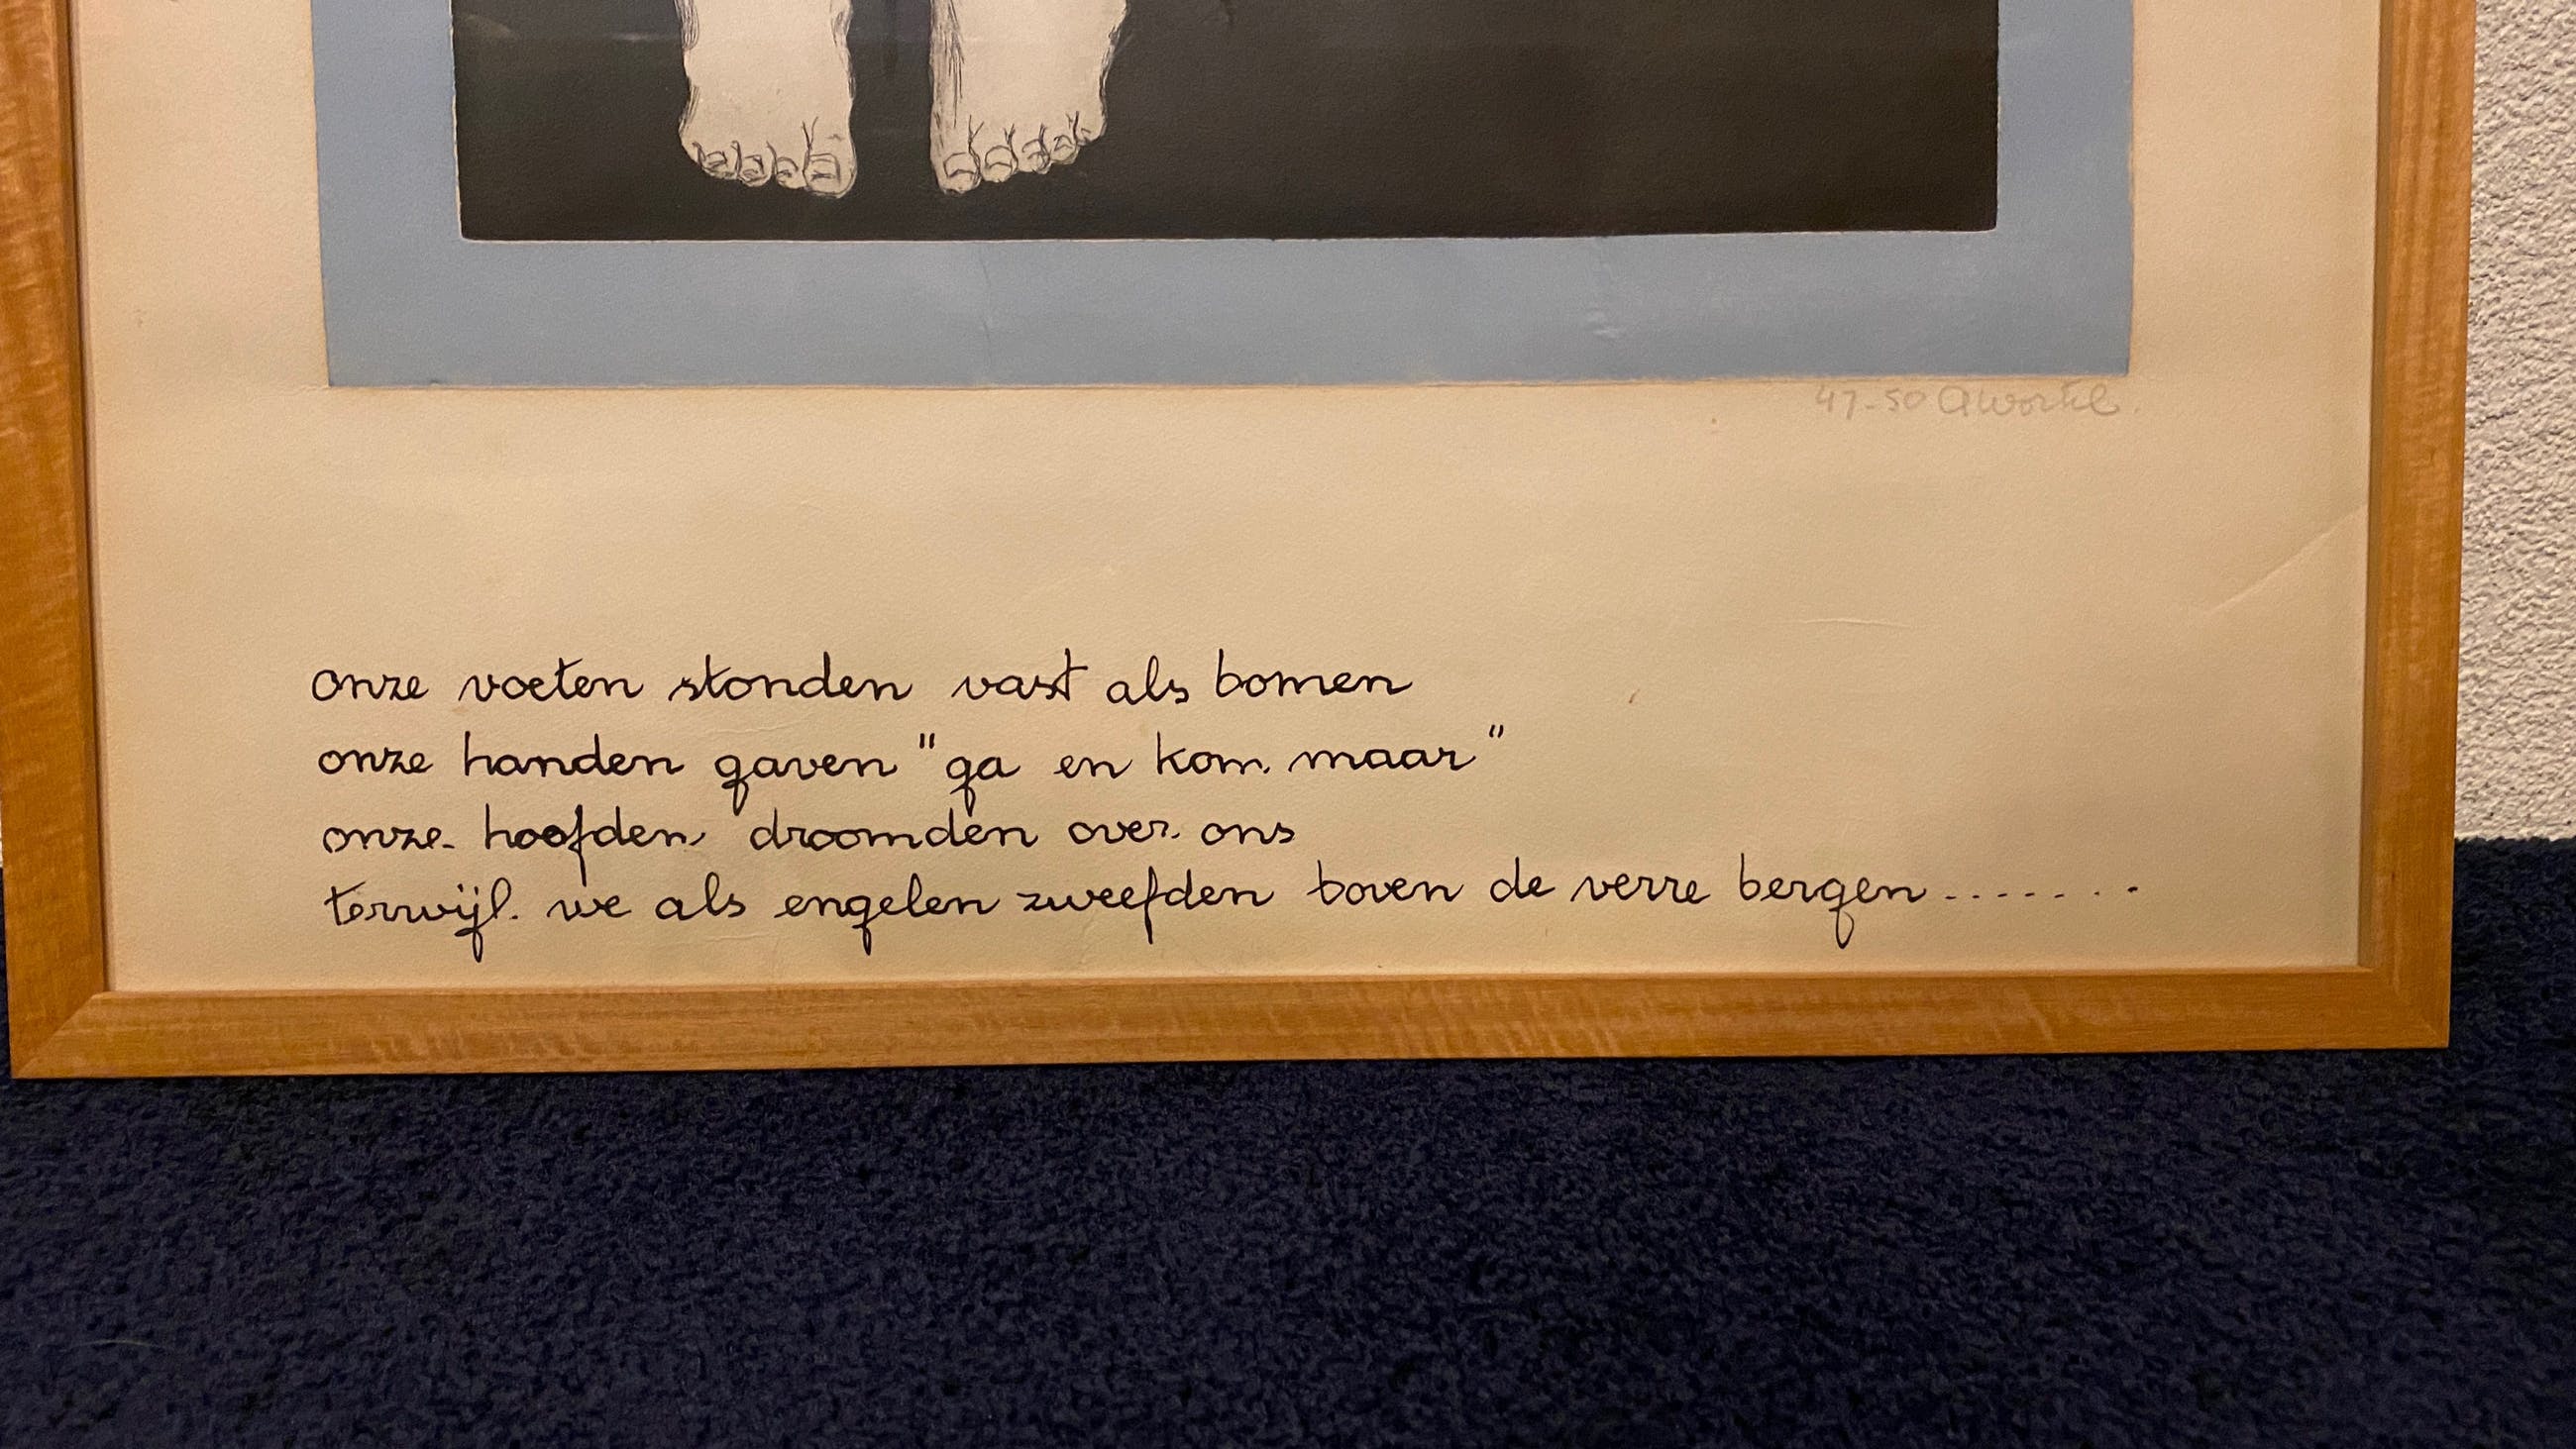 47-50
onze voeten stonden vast als bomen
onze handen gaven "ga en kom maar"
onze hoofden droomden over ons
terwijl we als engelen zweefden boven de verre bergen.......